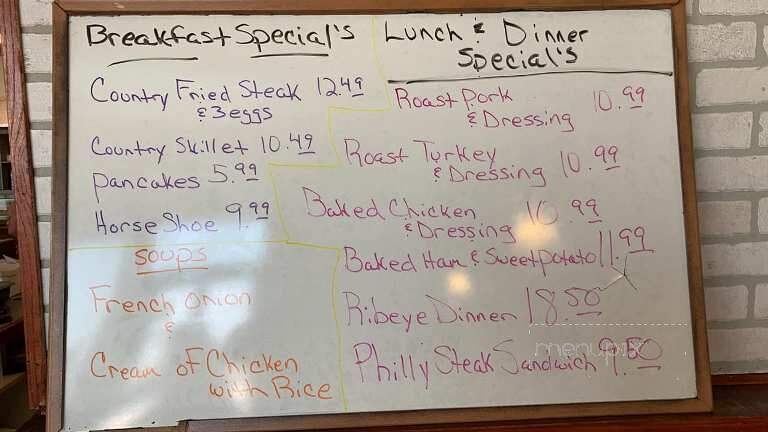 Breakfast Special's
Country Fried Steak 12.49
& 3 eggs
Country Skillet 10.49
Pancakes 5.99
Horse Shoe 9.99
Soups
French Onion
&
Cream of Chicken
with Rice
Lunch & Dinner
Special's
Roast Pork 10.99
& Dressing
Roast Turkey 10.99
& Dressing
Baked Chicken 10.99
& Dressing
Baked Ham & Sweet potato 11.99
Ribeye Dinner 18.50
Philly Steak Sandwich 9.50